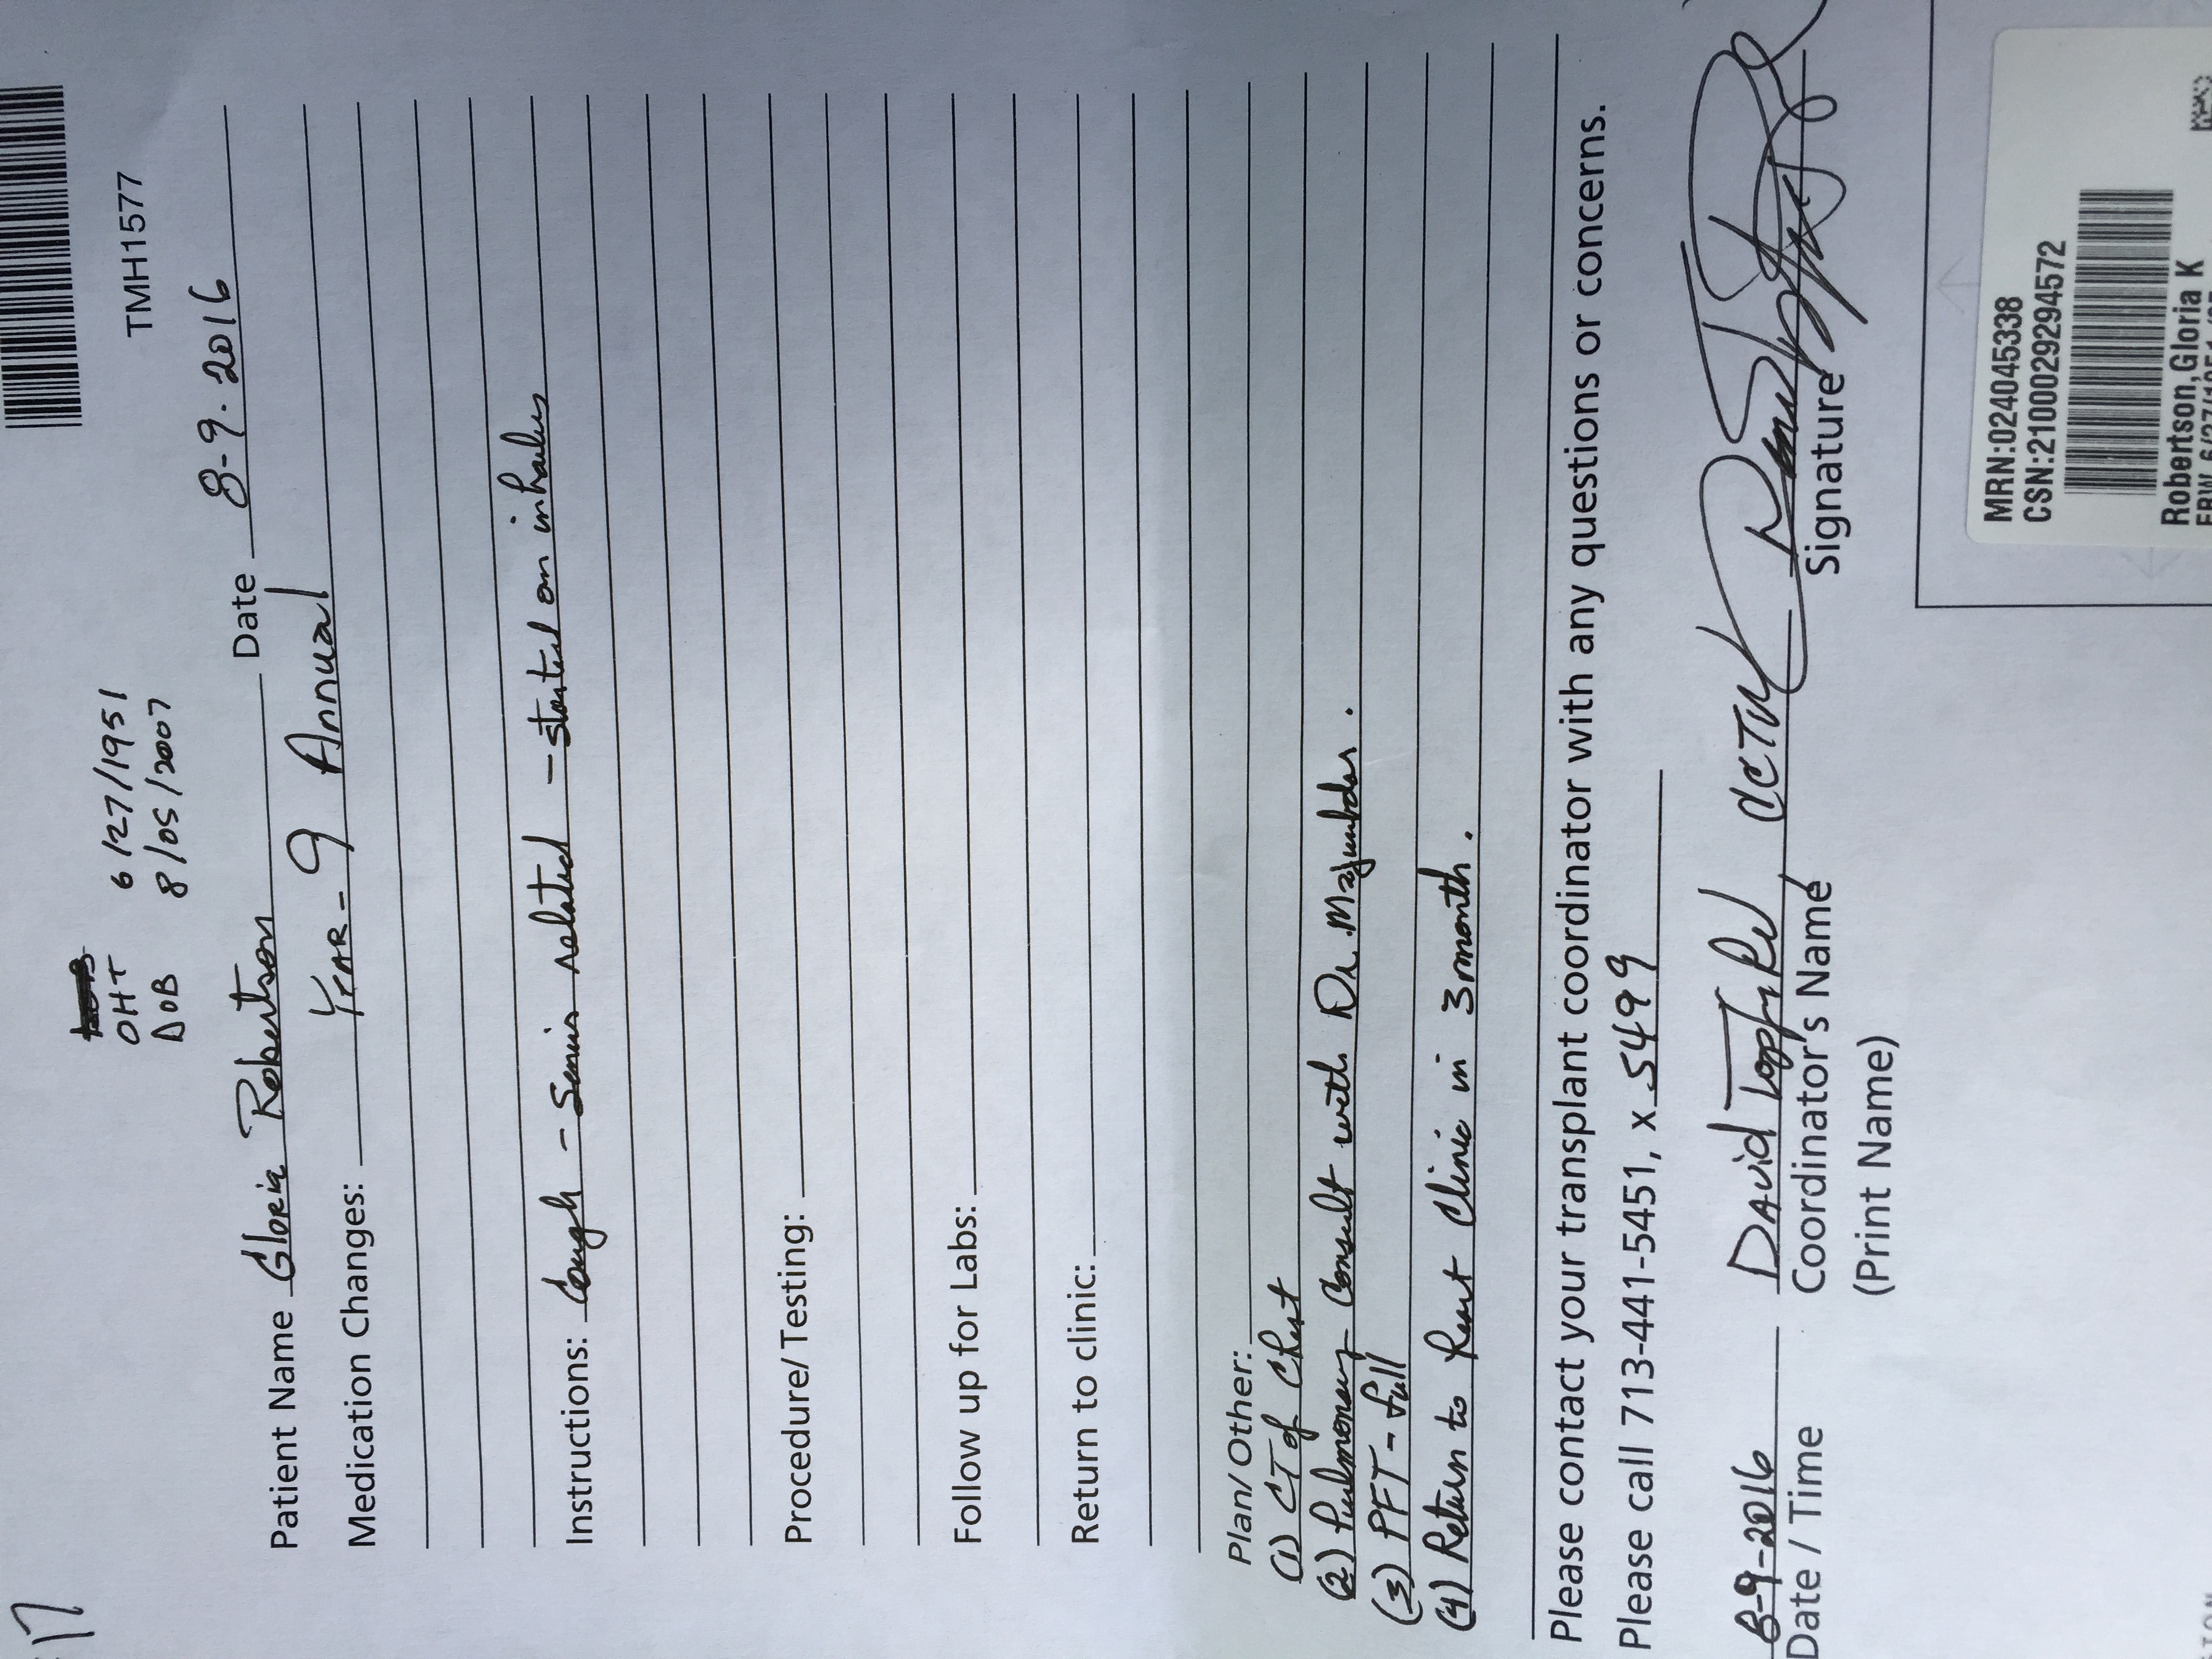 TMH1577
OHT 6/27/1951
DOB 8/05/2007
Patient Name Gloria Robertson Date 8-9-2016
Medication Changes: YEAR-9 Annual
Instructions: Cough - Sinus related - started on inhalers
Procedure/Testing:
Follow up for Labs:
Return to clinic:
Plan/Other:
(1) CT of Chest
(2) Pulmonary Consult with Dr. Majumdar.
(3) PFT - full
(4) Return to Heart Clinic in 3 month.
Please contact your transplant coordinator with any questions or concerns.
Please call 713-441-5451, x 5499
8-9-2016 David
Date / Time Coordinator's Name Signature
(Print Name)
MRN:024045338
CSN:2100029294572
Robertson,Gloria K